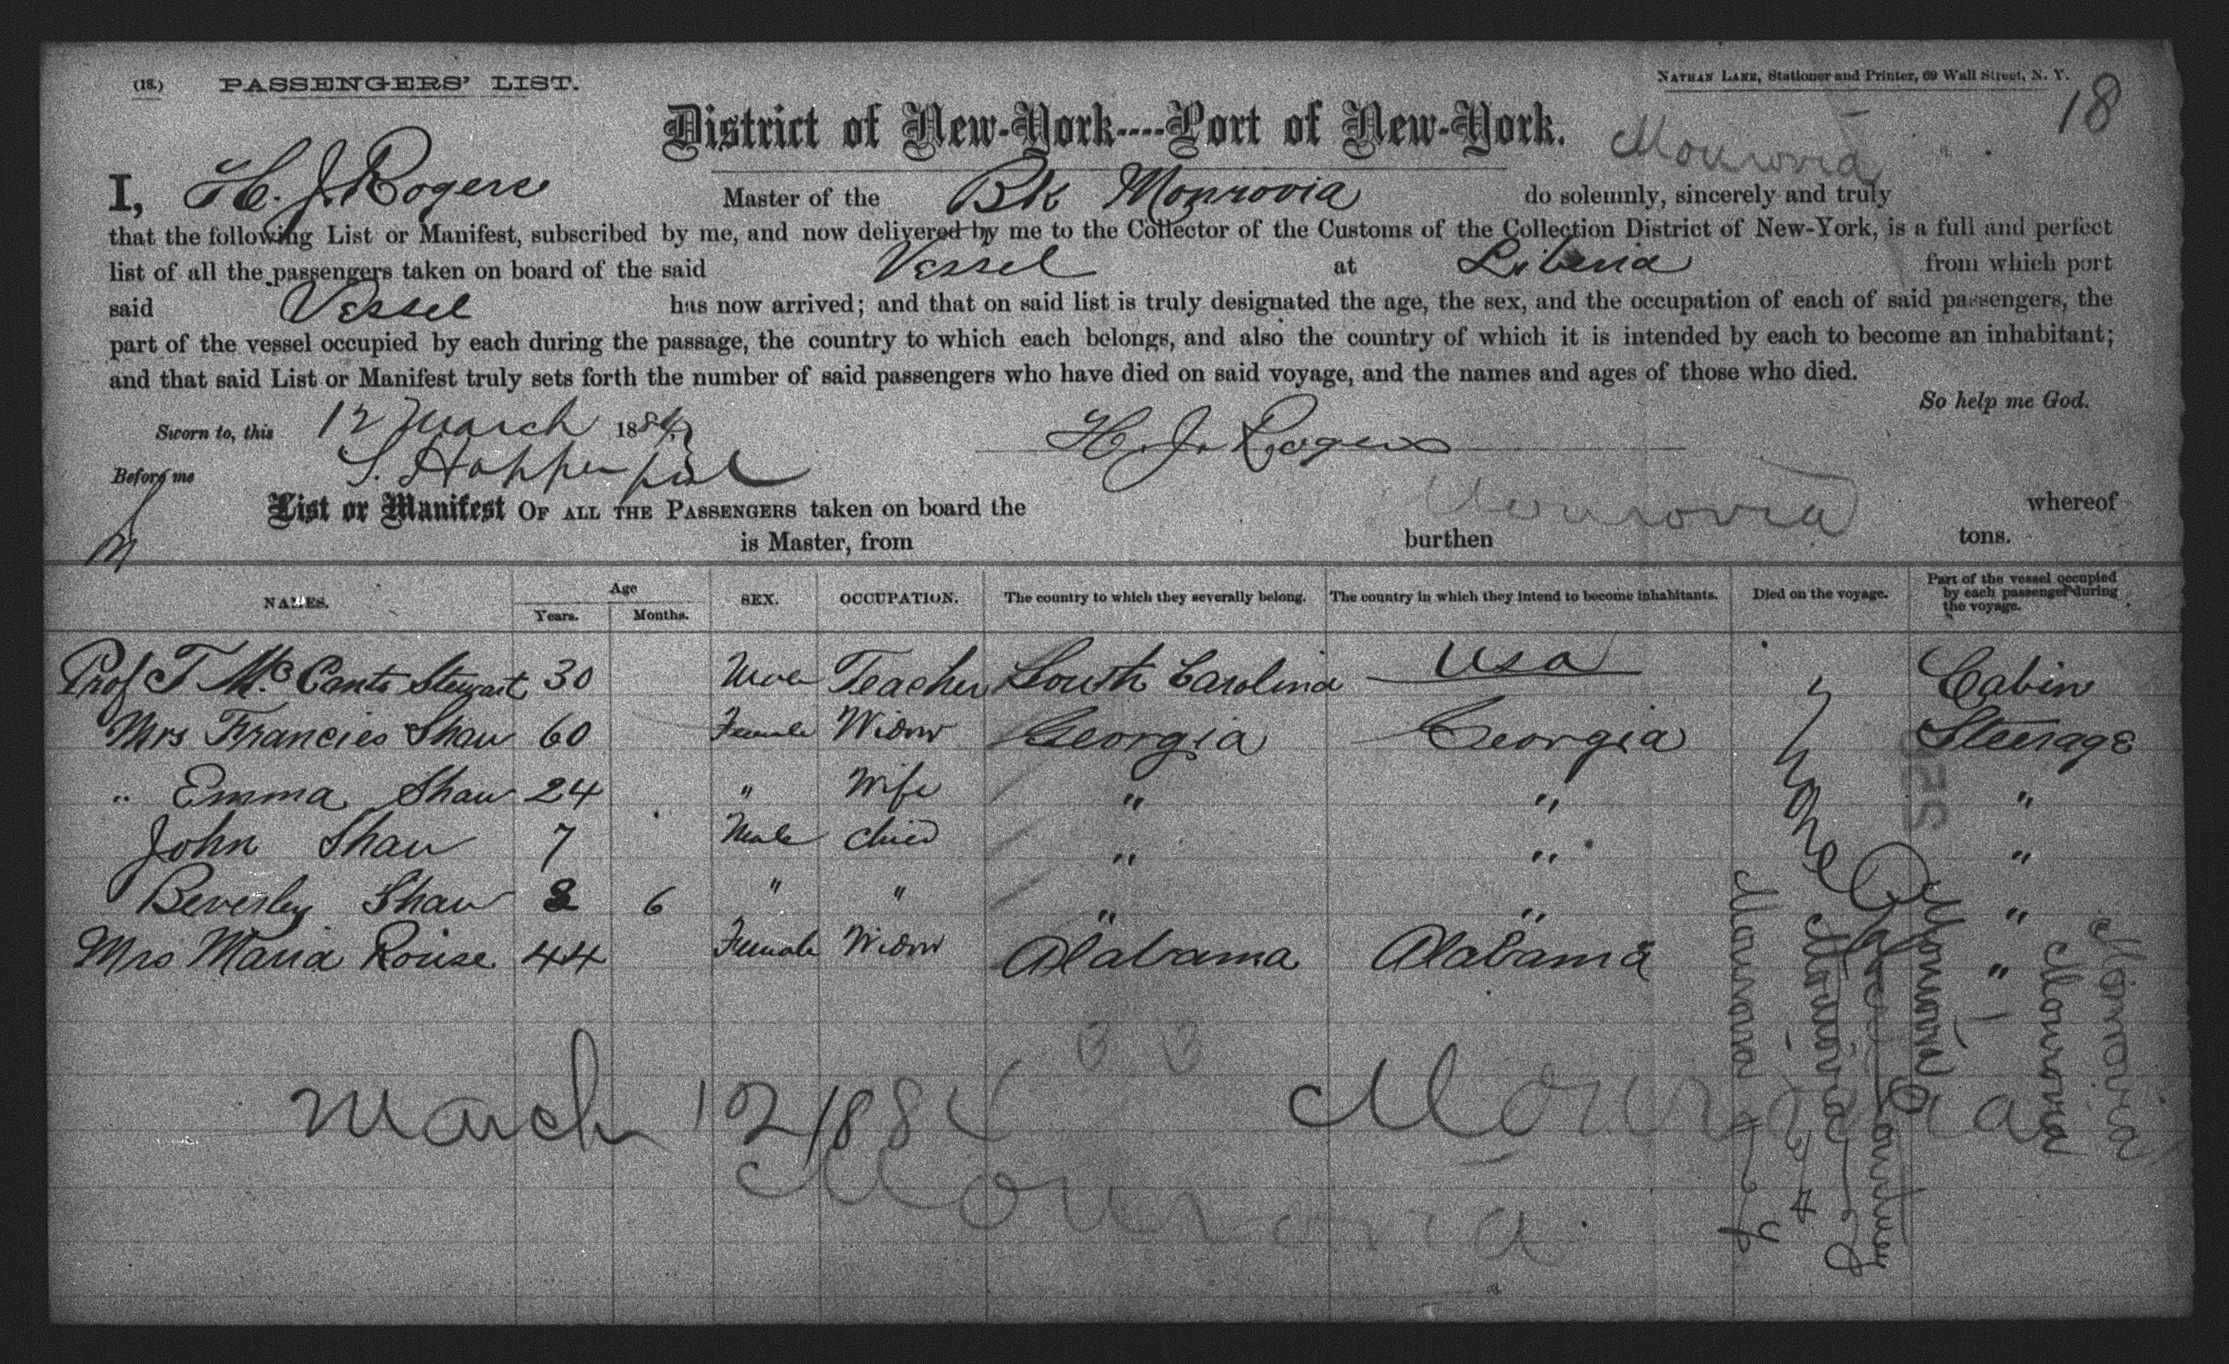 (18.) PASSENGERS' LIST. NATHAN LANE, Stationer and Printer, 69 Wall Street, N. Y.
18
District of New-York----Port of New-York. Monrovia
I, H. J. Rogers Master of the Bk Monrovia do solemnly, sincerely and truly
that the following List or Manifest, subscribed by me, and now delivered by me to the Collector of the Customs of the Collection District of New-York, is a full and perfect
list of all the passengers taken on board of the said Vessel at Liberia from which port
said Vessel has now arrived; and that on said list is truly designated the age, the sex, and the occupation of each of said passengers, the
part of the vessel occupied by each during the passage, the country to which each belongs, and also the country of which it is intended by each to become an inhabitant;
and that said List or Manifest truly sets forth the number of said passengers who have died on said voyage, and the names and ages of those who died.
So help me God.
Sworn to, this 12 March 188
H. J. Rogers
Before me S. Hopper
List or Manifest OF ALL THE PASSENGERS taken on board the Monrovia whereof
is Master, from burthen tons.
NAMES. Age Years. Months. SEX. OCCUPATION. The country to which they severally belong. The country in which they intend to become inhabitants. Died on the voyage. Part of the vessel occupied by each passenger during the voyage.
Prof T McCants Stewart 30 Male Teacher South Carolina USA Cabin
Mrs Francies Shaw 60 Female Widow Georgia Georgia Steerage
" Emma Shaw 24 " Wife " " "
John Shaw 7 Male Child " " "
Beverley Shaw 3 6 " " " " "
Mrs Maria Rouise 44 Female Widow Alabama Alabama "
None
Monrovia
Monrovia
Monrovia
Monrovia
Monrovia
March 12/188
Monrovia
Monrovia